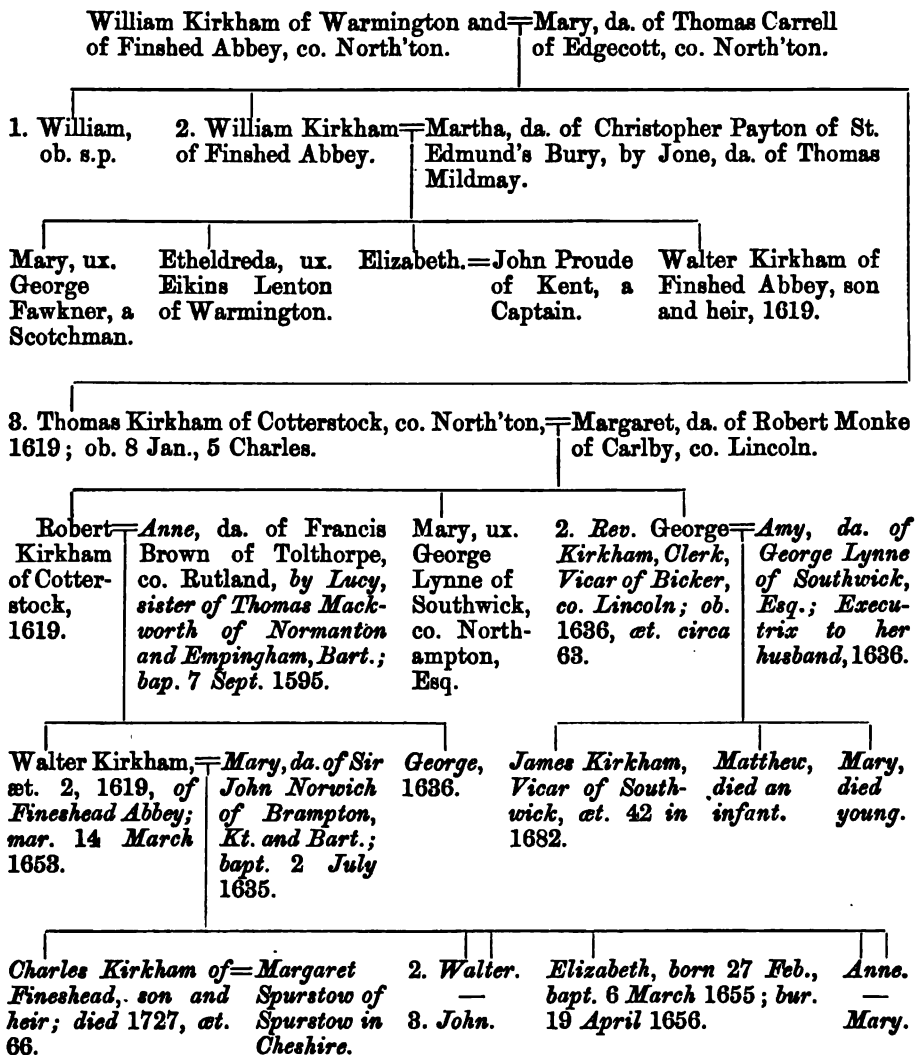 William Kirkham of Warmington and
of Finshed Abbey, co. North'ton.
Mary, da. of Thomas Carrell
of Edgecott, co. North'ton.
1. William,
ob. s.p.
2. William Kirkham
of Finshed Abbey.
Martha, da. of Christopher Payton of St.
Edmund's Bury, by Jone, da. of Thomas
Mildmay.
Mary, ux.
George
Fawkner, a
Scotchman.
Etheldreda, ux.
Eikins Lenton
of Warmington.
Elizabeth.=
John Proude
of Kent, a
Captain.
Walter Kirkham of
Finshed Abbey, son
and heir, 1619.
3. Thomas Kirkham of Cotterstock, co. North'ton,
1619; ob. 8 Jan., 5 Charles.
Margaret, da. of Robert Monke
of Carlby, co. Lincoln.
Robert
Kirkham
of Cotter-
stock,
1619.
Anne, da. of Francis
Brown of Tolthorpe,
co. Rutland, by Lucy,
sister of Thomas Mack-
worth of Normanton
and Empingham, Bart.;
bap. 7 Sept. 1595.
Mary, ux.
George
Lynne of
Southwick,
co. North-
ampton,
Esq.
2. Rev. George
Kirkham, Clerk,
Vicar of Bicker,
co. Lincoln; ob.
1636, æt. circa
63.
Amy, da. of
George Lynne
of Southwick,
Esq.; Execu-
trix to her
husband, 1636.
Walter Kirkham,
æt. 2, 1619, of
Fineshead Abbey;
mar. 14 March
1653.
Mary, da. of Sir
John Norwich
of Brampton,
Kt. and Bart.;
bapt. 2 July
1635.
George,
1636.
James Kirkham,
Vicar of South-
wick, æt. 42 in
1682.
Matthew,
died an
infant.
Mary,
died
young.
Charles Kirkham of=
Fineshead, son and
heir; died 1727, æt.
66.
Margaret
Spurstow of
Spurstow in
Cheshire.
2. Walter.
—
3. John.
Elizabeth, born 27 Feb.,
bapt. 6 March 1655; bur.
19 April 1656.
Anne.
—
Mary.